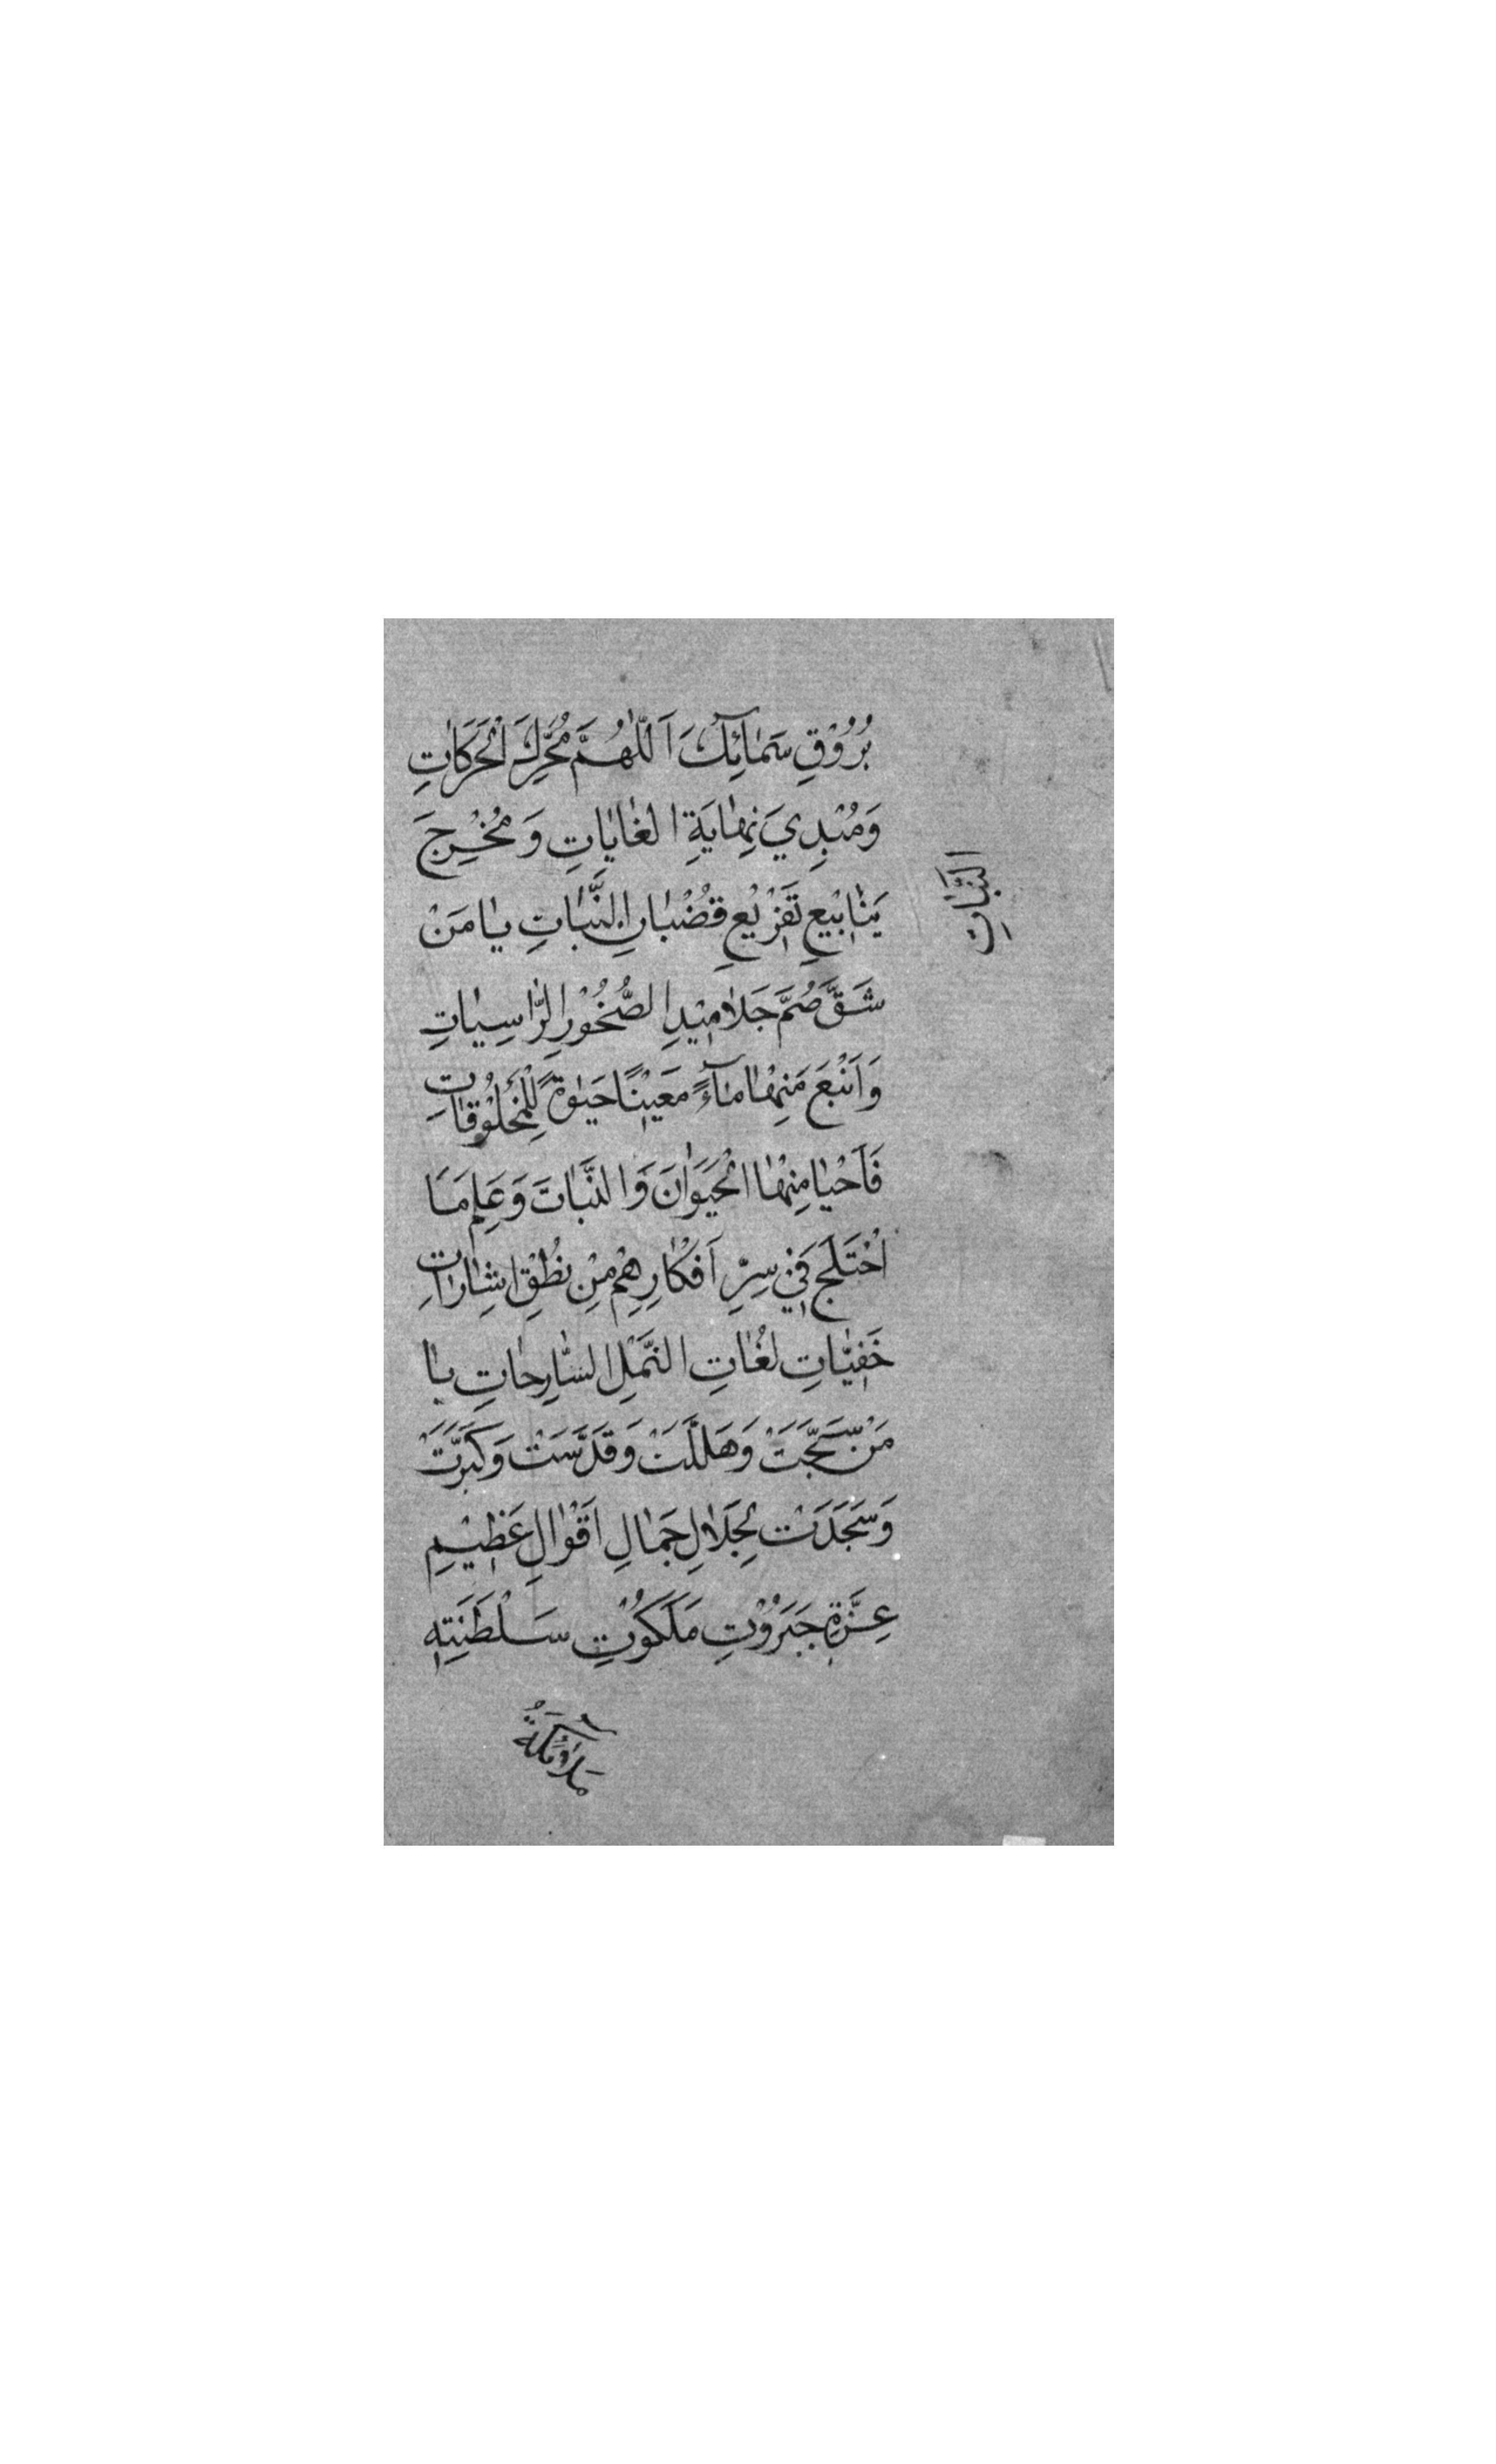 بُرُوْقِ سَمٰائِكَ اَللّٰهُمَّ مُحَرِّكَ الْحَرَكٰاتِ
وَمُبْدِيَ نِهٰايَةِ الْغٰايٰاتِ وَمُخْرِجَ
يَنٰابِيْعِ تَفْرِيْعِ قُضْبٰانِ النَّبٰاتِ يٰا مَنْ
النَّبٰاتِ
شَقَّ صُمَّ جَلاٰمِيْدِ الصُّخُوْرِ الرّٰاسِيٰاتِ
وَاَنْبَعَ مِنْهٰا مٰآءً مَعِيْنًا حَيٰوةً لِلْمَخْلُوْقٰاتِ
فَاَحْيٰا مِنْهٰا الْحَيَوٰانَ وَالنَّبٰاتَ وَعَلِمَ مَا
اخْتَلَجَ فِيْ سِرِّ اَفْكٰارِهِمْ مِنْ نُطْقِ اِشٰارٰاتِ
خَفِيّٰاتِ لُغٰاتِ النَّمْلِ السّٰارِحٰاتِ يٰا
مَنْ سَبَّحَتْ وَهَلَّلَتْ وَقَدَّسَتْ وَكَبَّرَتْ
وَسَجَدَتْ لِجَلاٰلِ جَمٰالِ اَقْوٰالِ عَظِيْمِ
عِزَّةِ جَبَرُوْتِ مَلَكُوْتِ سَلْطَنَتِهِ
مَلاٰئِكَةُ